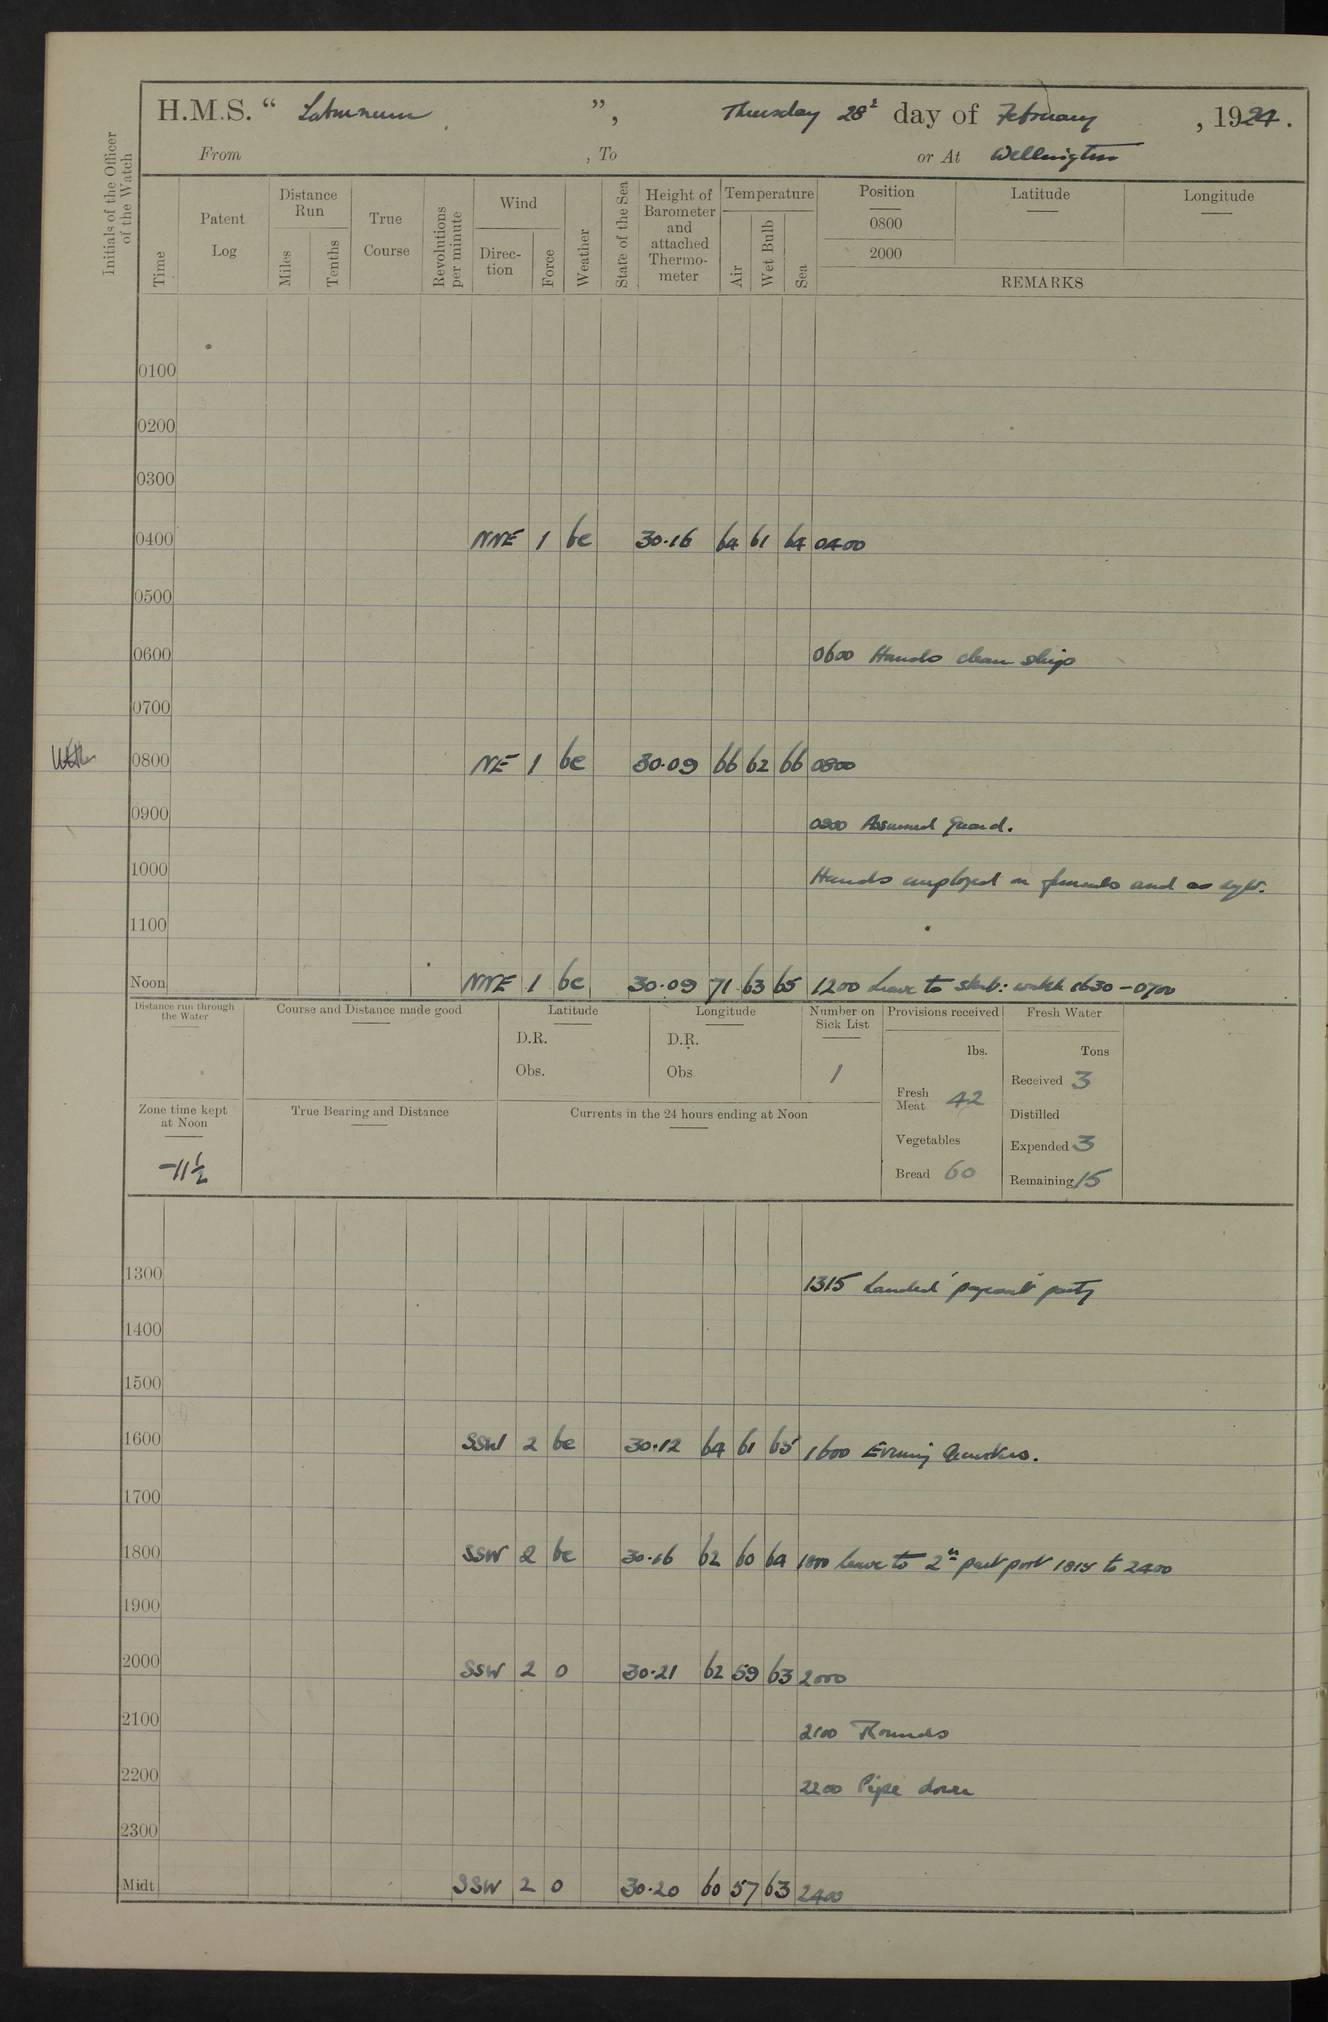 H.M.S. " Laburnum ", Thursday 28th day of February , 1924.
From , To or At Wellington
Initials of the Officer of the Watch
Time
Patent Log
Distance Run
Miles
Tenths
True Course
Revolutions per minute
Wind
Direc-tion
Force
Weather
State of the Sea
Height of Barometer and attached Thermo-meter
Temperature
Air
Wet Bulb
Sea
Position
0800
2000
Latitude
Longitude
REMARKS
0100
0200
0300
0400 NNE 1 bc 30.16 64 61 64 0400
0500
0600 0600 Hands clean ship
0700
0800 NE 1 bc 30.09 66 62 66 0800
0900 0900 Assumed Guard.
1000 Hands employed on funnels and as
1100
Noon NNE 1 bc 30.09 71 63 65 1200 Leave to starb: watch 1630 - 0700
Distance run through the Water
Course and Distance made good
Latitude
D.R.
Obs.
Longitude
D.R.
Obs
Number on Sick List
1
Provisions received
lbs.
Fresh Meat 42
Vegetables
Bread 60
Fresh Water
Tons
Received 3
Distilled
Expended 3
Remaining 15
Zone time kept at Noon
-11½
True Bearing and Distance
Currents in the 24 hours ending at Noon
1300 1315 Landed "pageant" party
1400
1500
1600 SSW 2 bc 30.12 64 61 65 1600 Evening Quarters.
1700
1800 SSW 2 bc 30.16 62 60 64 1800 Leave to 2nd part port 1815 to 2400
1900
2000 SSW 2 o 30.21 62 59 63 2000
2100 2100 Rounds
2200 2200 Pipe down
2300
Midt SSW 2 o 30.20 60 57 63 2400